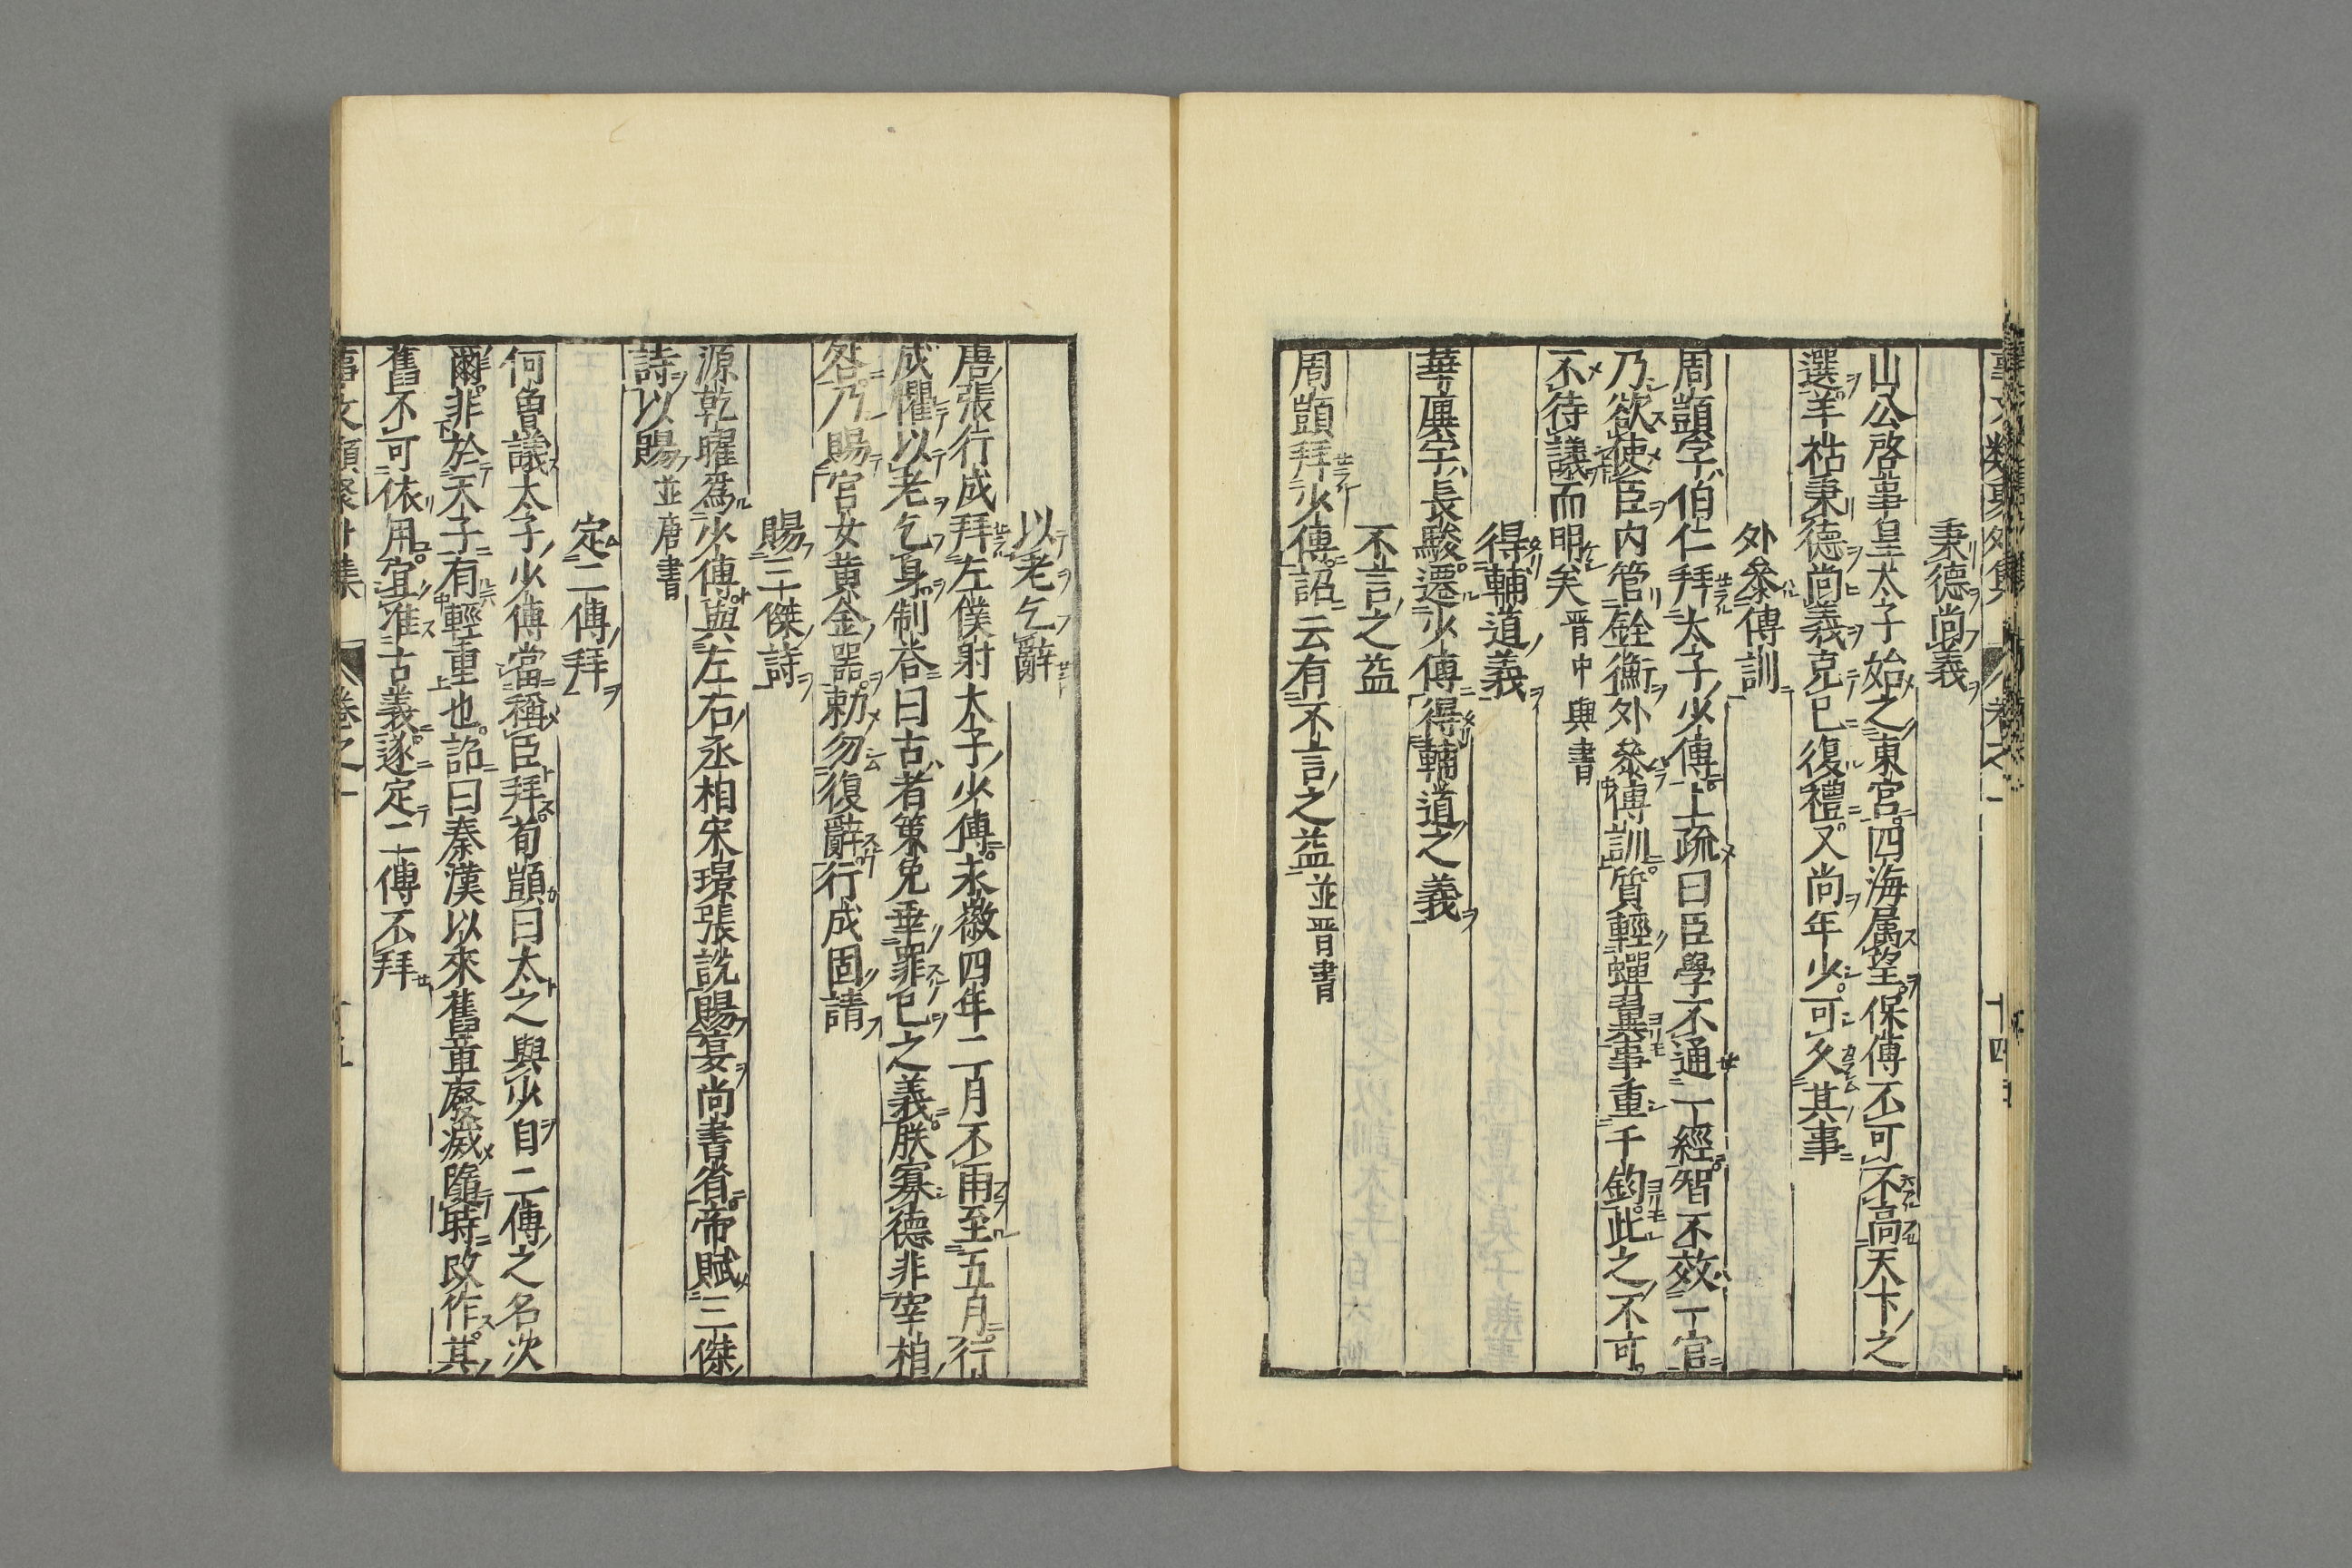 秉德尚義
山公啓事皇太子始之東宮四海属望保傅不可不高天下之
選羊祜秉德尚義克己復禮又尚年少可久其事
外叅傅訓
周顗字伯仁拜太子少傅上疏曰臣學不通一經智不效一官
乃欲使臣内管銓衡外叅傅訓質輕蟬翼事重千鈞此之不可
不待議而明矣晉中興書
得輔道義
華廙字長駿遷少傅得輔道之義
不言之益
周顗拜少傅詔云有不言之益並晋書
以老乞辭
唐張行成拜左僕射太子少傅永徽四年二月不雨至五月行
成懼以老乞身制答曰古者策免乖罪己之義朕寡德非宰相
咎乃賜宮女黄金器勅勿復辭行成固請
賜三傑詩
源乾曜爲少傅與左右丞相宋璟張說賜宴尚書省帝賦三傑
詩以賜並唐書
定二傅拜
何曾議太子少傅當稱臣拜荀顗曰太之與少自二傅之名次
爾非於天子有輕重也詔曰秦漢以來舊章廢滅隨時改作其
舊不可依用宜准古義遂定二傅不拜
事文類聚外集 卷之一 十五